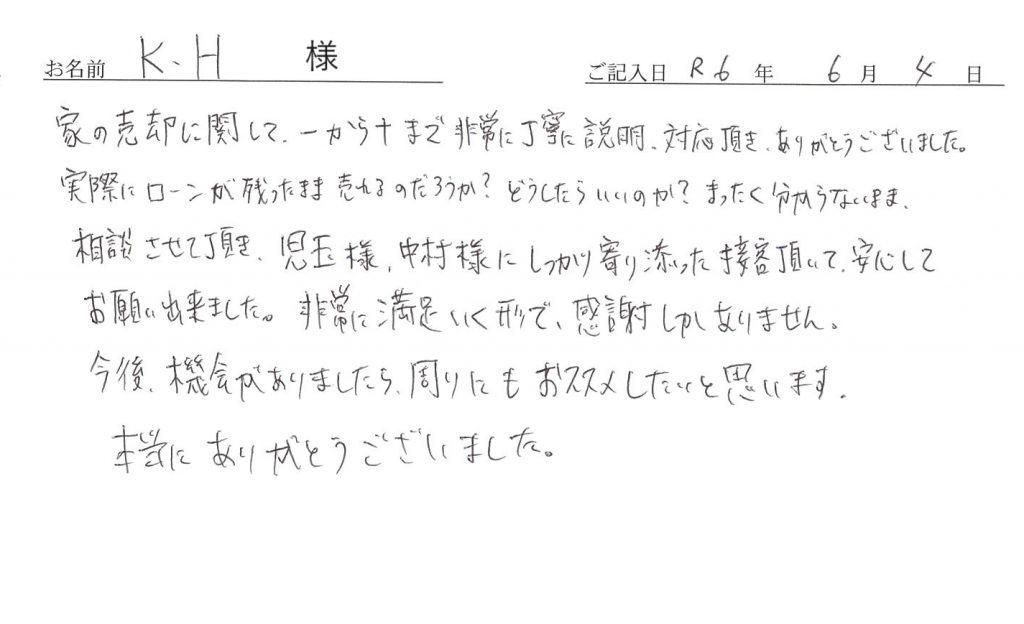 お名前 K.H 様 ご記入日 R6年 6月 4日
家の売却に関して、一から十まで非常に丁寧に説明、対応頂き、ありがとうございました。
実際にローンが残ったまま売れるのだろうか?どうしたらいいのか?まったく分からないまま、
相談させて頂き、児玉様、中村様にしっかり寄り添った接客頂いて、安心して
お願い出来ました。非常に満足いく形で、感謝しかありません。
今後、機会がありましたら、周りにもおススメしたいと思います。
本当にありがとうございました。